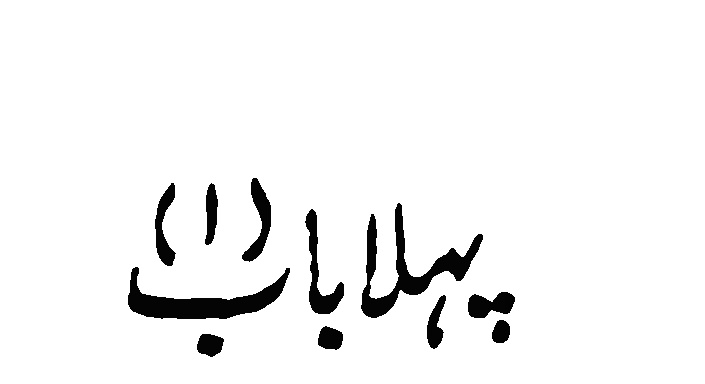 پہلا باب (۱)